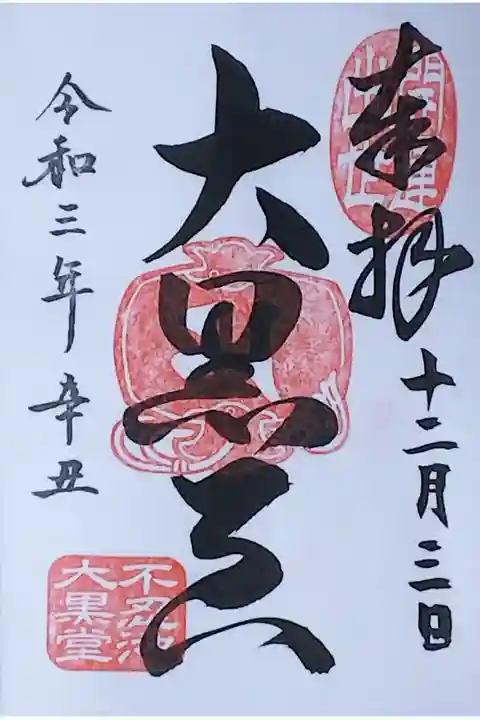 奉拝
開運
出世
十二月三日
大黒天
令和三年辛丑
不忍池
大黒堂